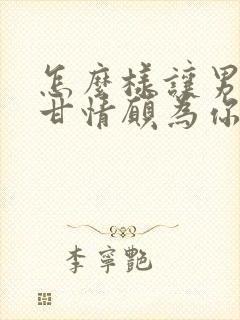 怎麼樣讓男
甘情願為你
李寧艷